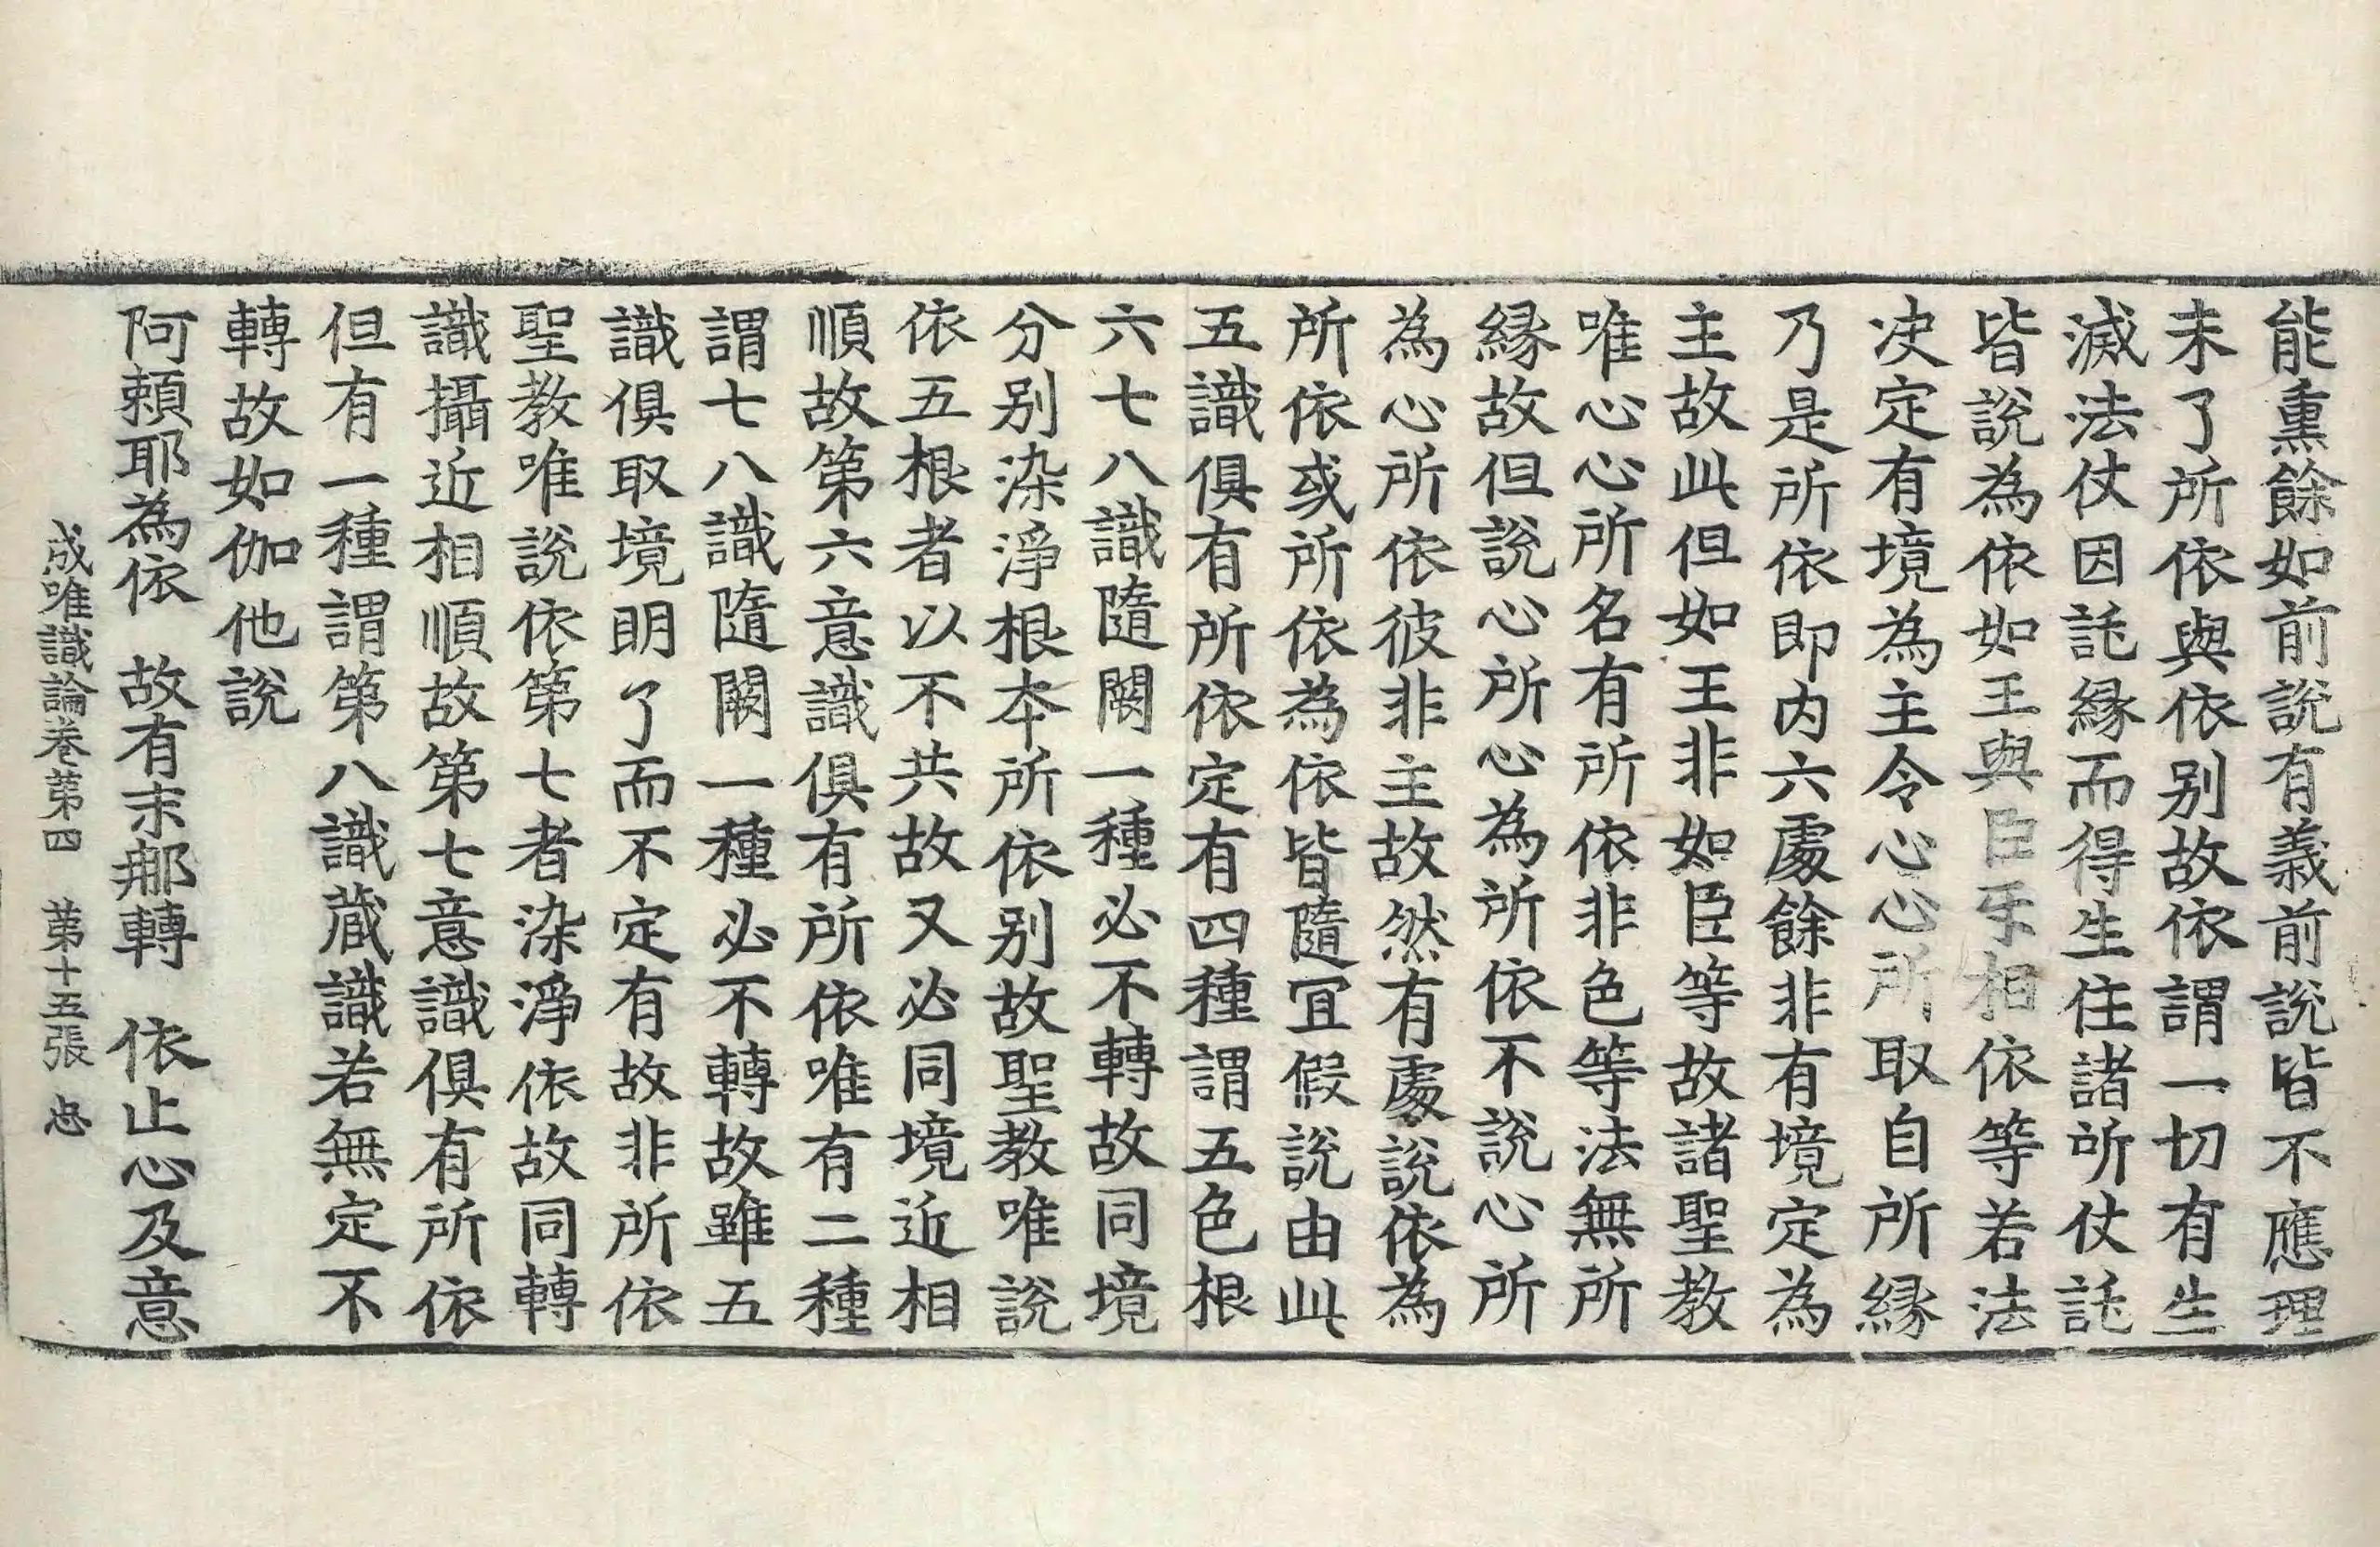 能熏餘如前說有義前說皆不應理
未了所依與依別故依謂一切有生
滅法仗因託緣而得生住諸所仗託
皆說為依如王與臣互相依等若法
决定有境為主令心心所取自所緣
乃是所依即內六處餘非有境定為
主故此但如王非如臣等故諸聖教
唯心心所名有所依非色等法無所
緣故但說心所心為所依不說心所
為心所依彼非主故然有處說依為
所依或所依為依皆隨宜假說由此
五識俱有所依定有四種謂五色根
六七八識隨闕一種必不轉故同境
分別染淨根本所依別故聖教唯說
依五根者以不共故又必同境近相
順故第六意識俱有所依唯有二種
謂七八識隨闕一種必不轉故雖五
識俱取境明了而不定有故非所依
聖教唯說依第七者染淨依故同轉
識攝近相順故第七意識俱有所依
但有一種謂第八識藏識若無定不
轉故如伽他說
阿賴耶為依　故有末那轉　依止心及意
成唯識論卷第四　第十五張　忠